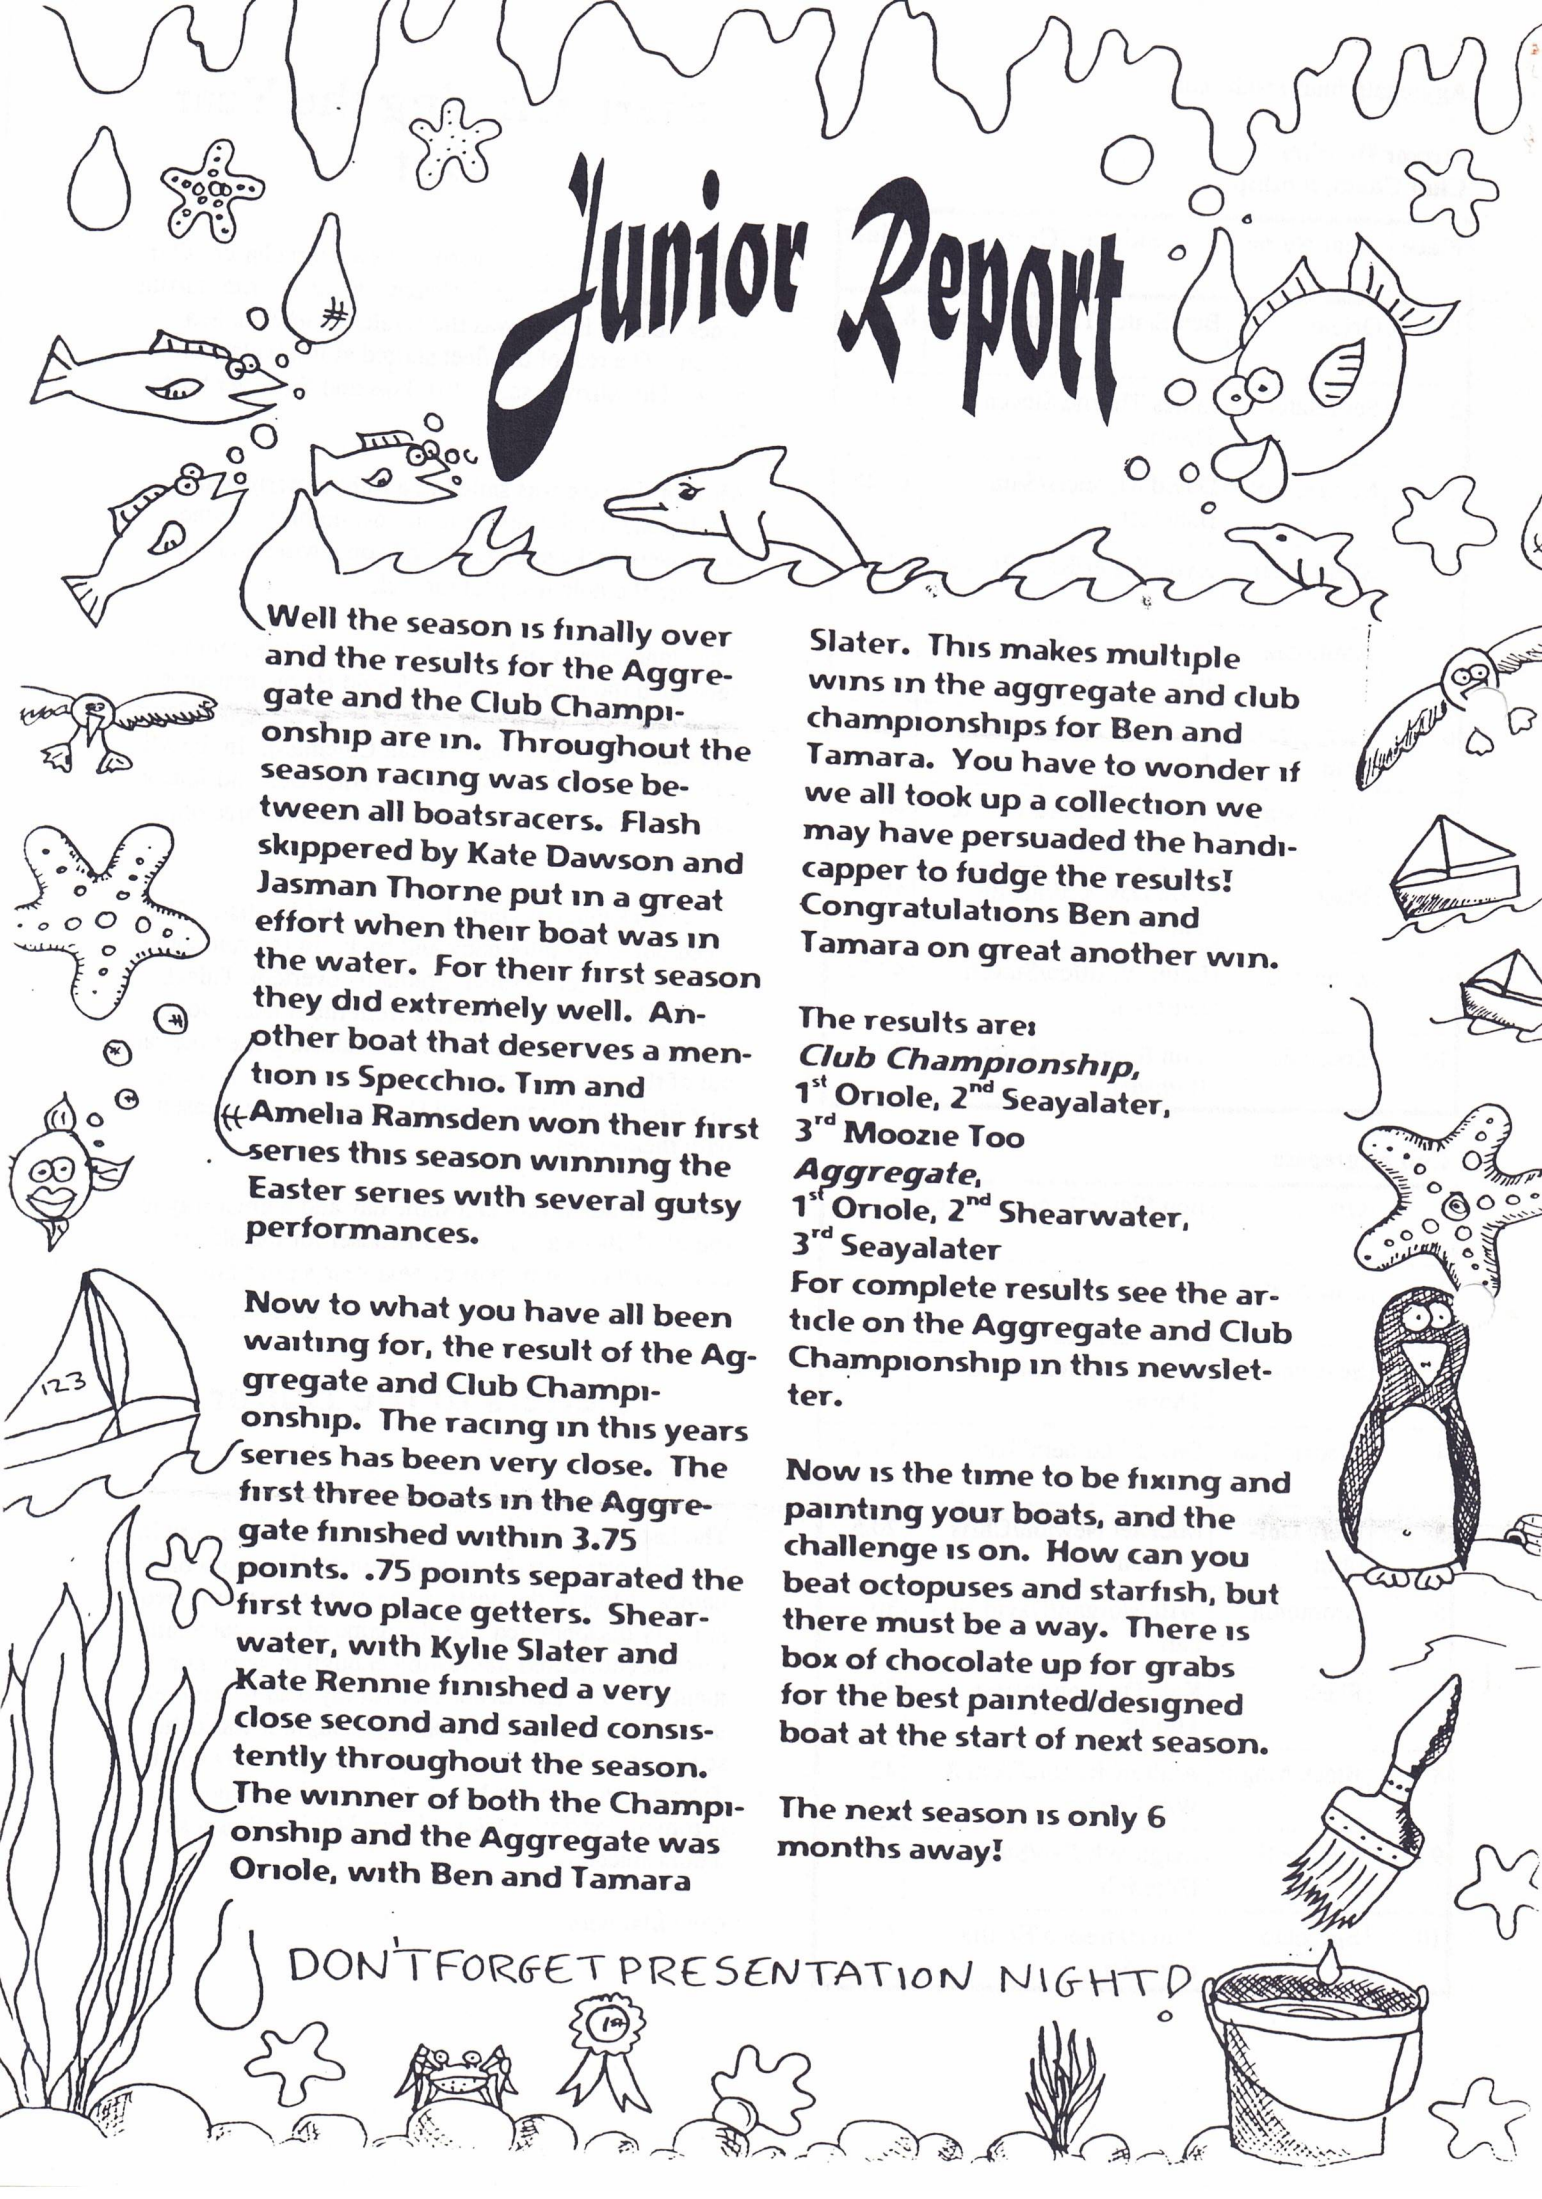 Junior Report
Well the season is finally over
and the results for the Aggre-
gate and the Club Champi-
onship are in. Throughout the
season racing was close be-
tween all boatsracers. Flash
skippered by Kate Dawson and
Jasman Thorne put in a great
effort when their boat was in
the water. For their first season
they did extremely well. An-
other boat that deserves a men-
tion is Specchio. Tim and
Amelia Ramsden won their first
series this season winning the
Easter series with several gutsy
performances.
Now to what you have all been
waiting for, the result of the Ag-
gregate and Club Champi-
onship. The racing in this years
series has been very close. The
first three boats in the Aggre-
gate finished within 3.75
points. .75 points separated the
first two place getters. Shear-
water, with Kylie Slater and
Kate Rennie finished a very
close second and sailed consis-
tently throughout the season.
The winner of both the Champi-
onship and the Aggregate was
Oriole, with Ben and Tamara
Slater. This makes multiple
wins in the aggregate and club
championships for Ben and
Tamara. You have to wonder if
we all took up a collection we
may have persuaded the handi-
capper to fudge the results!
Congratulations Ben and
Tamara on great another win.
The results are:
Club Championship,
1st Oriole, 2nd Seayalater,
3rd Moozie Too
Aggregate,
1st Oriole, 2nd Shearwater,
3rd Seayalater
For complete results see the ar-
ticle on the Aggregate and Club
Championship in this newslet-
ter.
Now is the time to be fixing and
painting your boats, and the
challenge is on. How can you
beat octopuses and starfish, but
there must be a way. There is
box of chocolate up for grabs
for the best painted/designed
boat at the start of next season.
The next season is only 6
months away!
123
DON'T FORGET PRESENTATION NIGHT!
1st